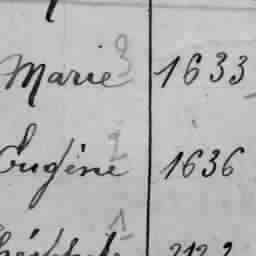 Marie 3 1633
Eugène 2 1636
1